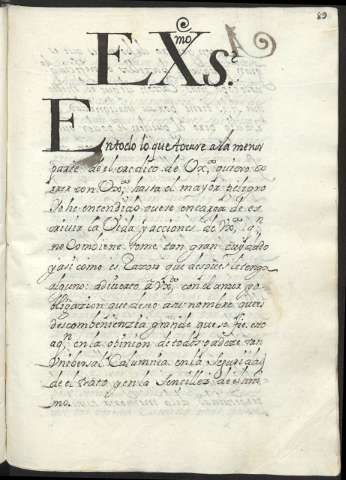 89
EXmo S.r
En todo lo que tocare a la menor
parte del credito de Vx.ª quiero co
rrer con Vx.ª hasta el mayor peligro
Yo he entendido que se encarga de es
crivir la Vida y acciones de Vx.ª q.n
no Combiene tome tan gran cuydado
y asi como es razon que despues le tenga
alguno advierto a Vx.ª con el amor y o
bligazion que devo a su nombre
descombenienzia grande que se fie esto
a q.n en la opinion de todos padeze vna
Vniversal Calumnia en la
de el trato y en la Senzillez de el ani
mo.